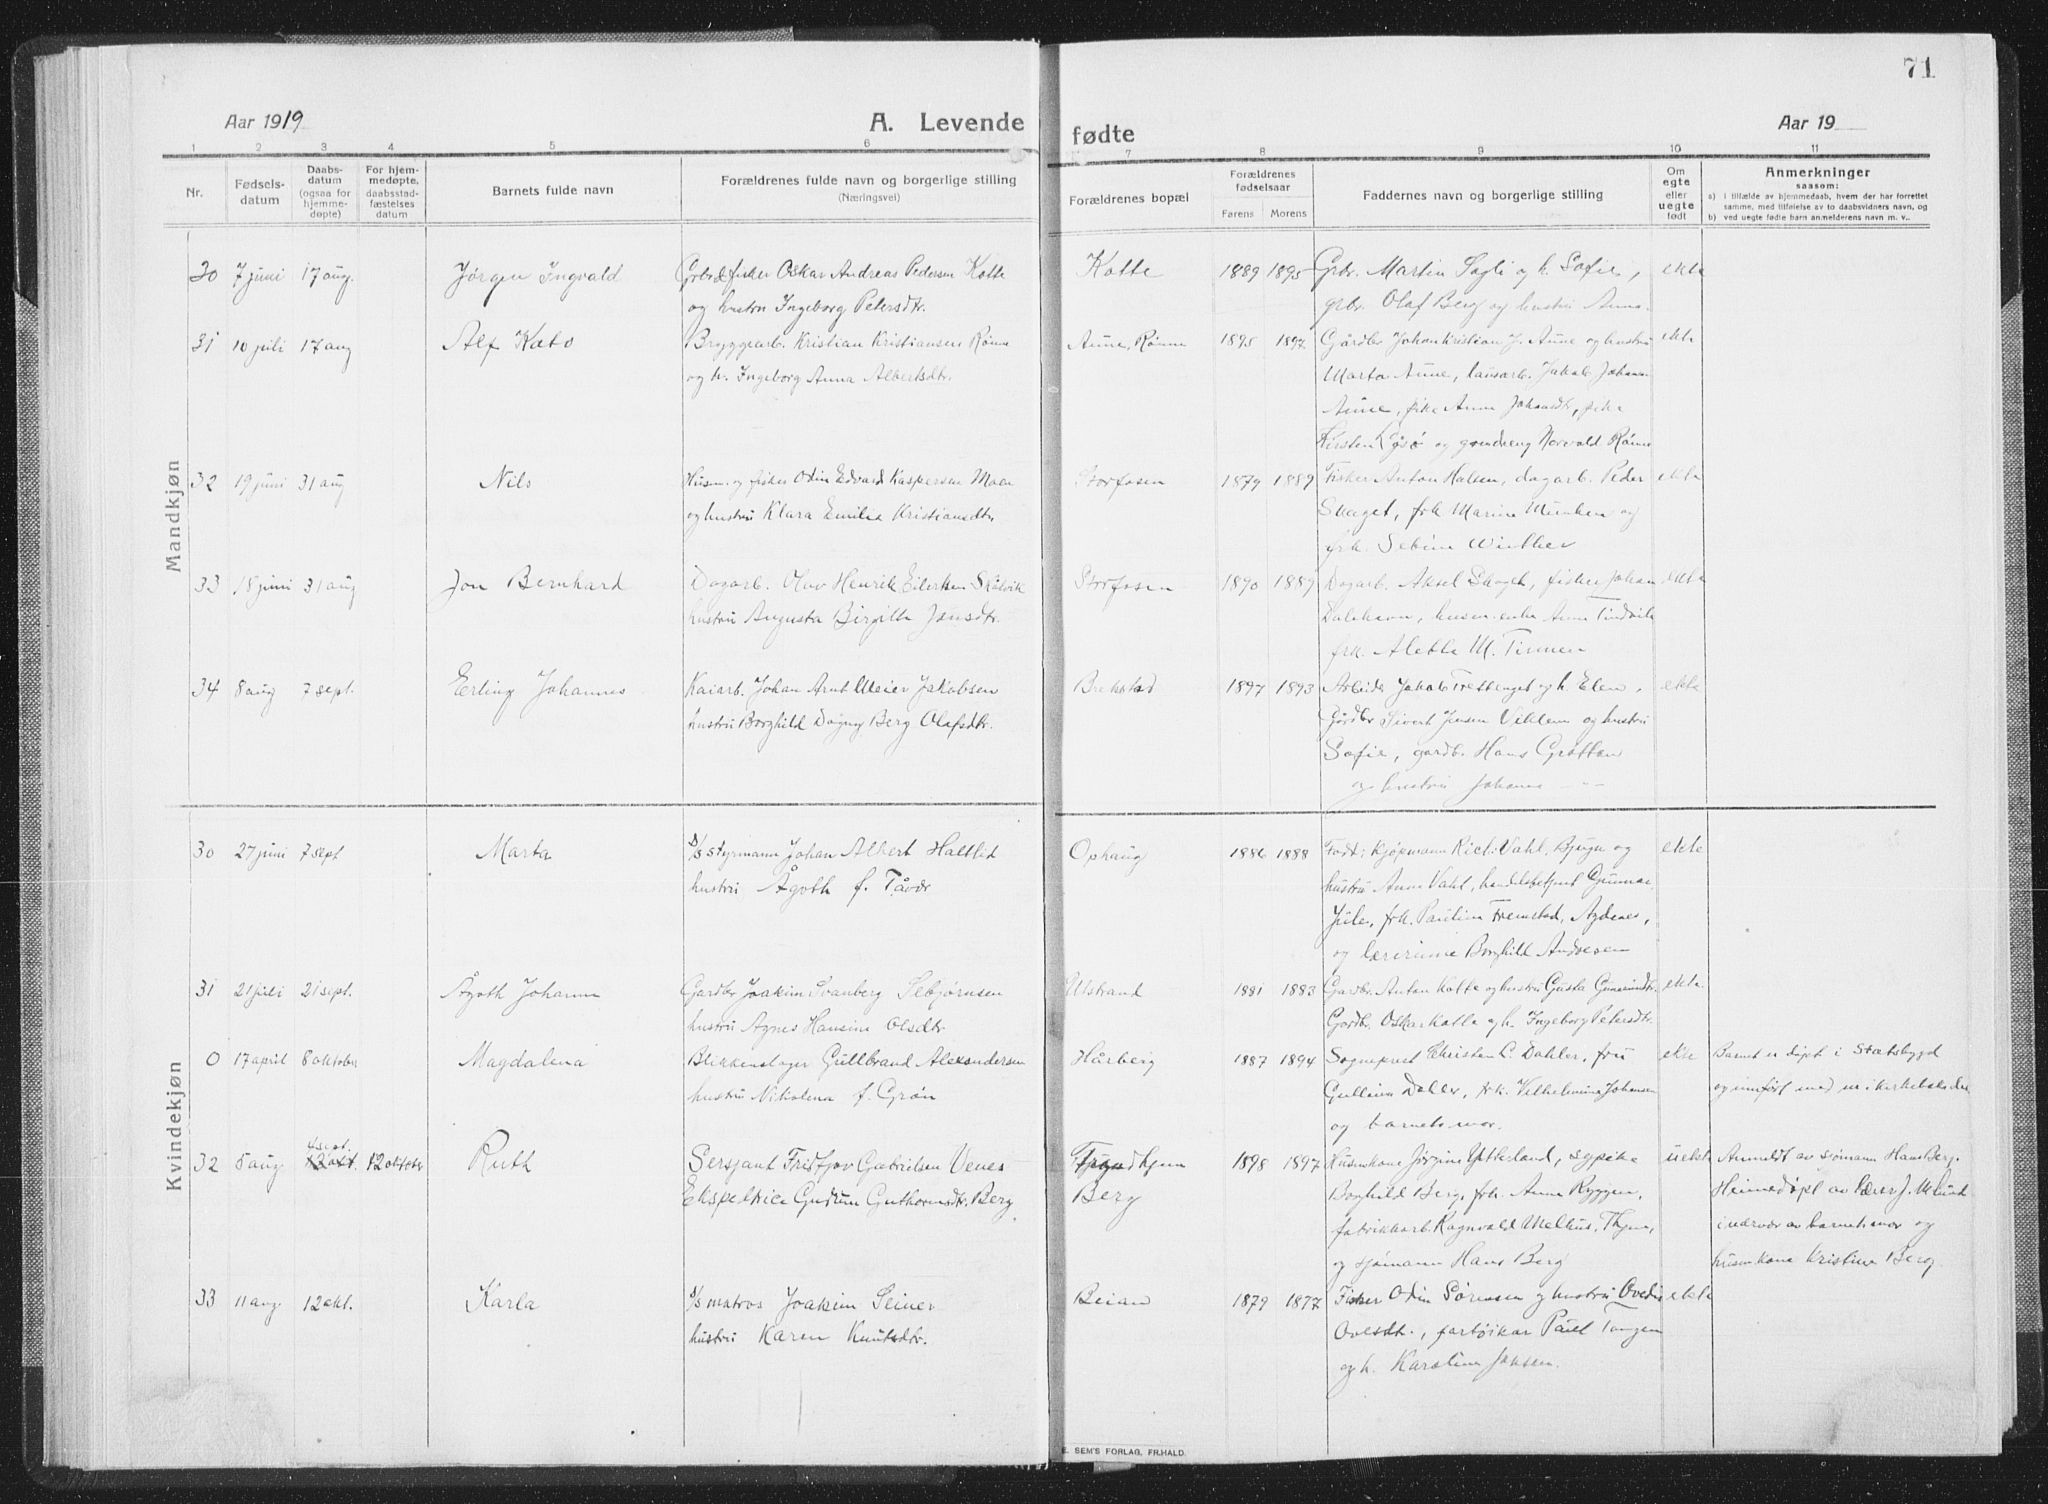 71
Aar 1919
A. Levende
fødte
Aar 19
1 2 3 4 5 6 7 8 9 10 11
Nr.
Fødsels-
datum
Daabs-
datum
(ogsaa for
hjemme-
døpte)
For hjem-
medøpte,
daabsstad-
fæstelses
datum
Barnets fulde navn
Forældrenes fulde navn og borgerlige stilling
(Næringsvei)
Forældrenes bopæl
Forældrenes
fødselsaar
Farens Morens
Faddernes navn og borgerlige stilling
Om
egte
eller
uegte
født
Anmerkninger
saasom:
a) i tilfælde av hjemmedaab, hvem der har forrettet
samme, med tilføielse av to daabsvidners navn, og
b) ved uegte fødte barn anmelderens navn m. v..
Mandkjøn
30 7 juni 17 aug. Jørgen Ingvald Oskar Andreas Pedersen Kotte Kotte 1889 1895 Grbr. Martin Sagli og h. Sofie, ekte
og hustru Ingeborg Petersdtr. grbr. Olaf Berg og hustru Anna.
31 10 juli 17 aug Alf Kato Bryggearb. Kristian Kristiansen Rønne Aune, Rønne 1895 1897 Gårdbr Johan Kristian J. Aune og hustru ekte
og h. Ingeborg Anna Albertsdtr. Marta Aune, lausarb. Jakob Johansen
Aune, pike Anna Johansdtr, pike
Kirsten og Norvald Rønne
32 19 juni 31 aug Nils Husm. og fisker Odin Edvard Kaspersen Moen Storfosen 1879 1889 Fisker Anton Halsen, dagarb. Peder ekte
og hustru Klara Emilie Kristiansdtr. Skaget, frk Marine Munken og
frk. Sebine Winther
33 18 juni 31 aug Jon Bernhard Dagarb. Olav Henrik Eilertsen Skålvik Storfosen 1890 1889 Dagarb. Aksel Skaget, fisker Johan ekte
hustru Augusta Birgitte Jensdtr. enke Anne Tindvik
frk. Alette M. Tinnen
34 8 aug 7 sept. Erling Johannes Kaiarb. Johan Arnt Meier Jakobsen Brekstad 1897 1893 Arbeider Jakob og h. Elen, ekte
hustru Borghild Dagny Berg Olafsdtr. Gårdbr Sivert Jensen Viklem og hustru
Sofie, gardb. Hans Grøttan
og hustru Johanna
Kvindekjøn
30 27 juni 7 sept Marta D/S styrmann Johan Albert Haltlid Ophaug 1886 1888 Fodt: Kjøpmann Rich. Vahl, Bjugn og ekte
hustru Ågoth f. Tåver hustru Anna Vahl, handelsbetjent Gunnar
Juler, frk. Pauline Fremstad, Agdenes,
og lærerinne Borghild Andresen
31 21 juli 21 sept. Ågoth Johanne Gardbr Joakim Svanberg Sebjørnsen Ulstrand 1881 1883 Gardbr. Anton Kotte og hustru Gusta ekte.
hustru Agnes Hansine Olsdtr Gardbr. Oskar Kotte og h. Ingeborg Petersdtr.
0 17 april 8 oktober Magdalena Blikkenslager Gullbrand Alexandersen Hårberg 1887 1894 Sogneprest Christen C. Dahler, fru ekte Barnet er døpt i Stadsbygd
hustru Nikolena f. Grøn Dahler, frk. Vilhelmine Johansen og innført med nr. i kirkeboka der
og barnets mor.
32 5 aug 4 sept. 12 okt. 12 oktober Ruth Sersjant Fridtjov Gabrielsen Venes Trondhjem 1898 1897 Husmkone Jørgine Ytterland, sypike uekte Anmeldt av sømann Hans Berg.
Ekspeditrice Gudrun Guthormsdtr. Berg Berg Borghild Berg, frk. Anna Ryggen, Heimedøpt av lærer J. Melund
fabrikkarb. Ragnvald Melhus, Thjem, i nærvær av barnets mor og
og sjømann Hans Berg husmkone Kristine Berg.
33 11 aug 12 okt. Karla D/S matros Joakim Seiner Beian 1879 1877 Fisker Odin Sørensen og hustru Ovedie ekte
hustru Karen Knutsdtr. Ovesdtr., fartøikar Paul Tangen
og h. Karoline Johsen.
E. SEM'S FORLAG, FR.HALD.